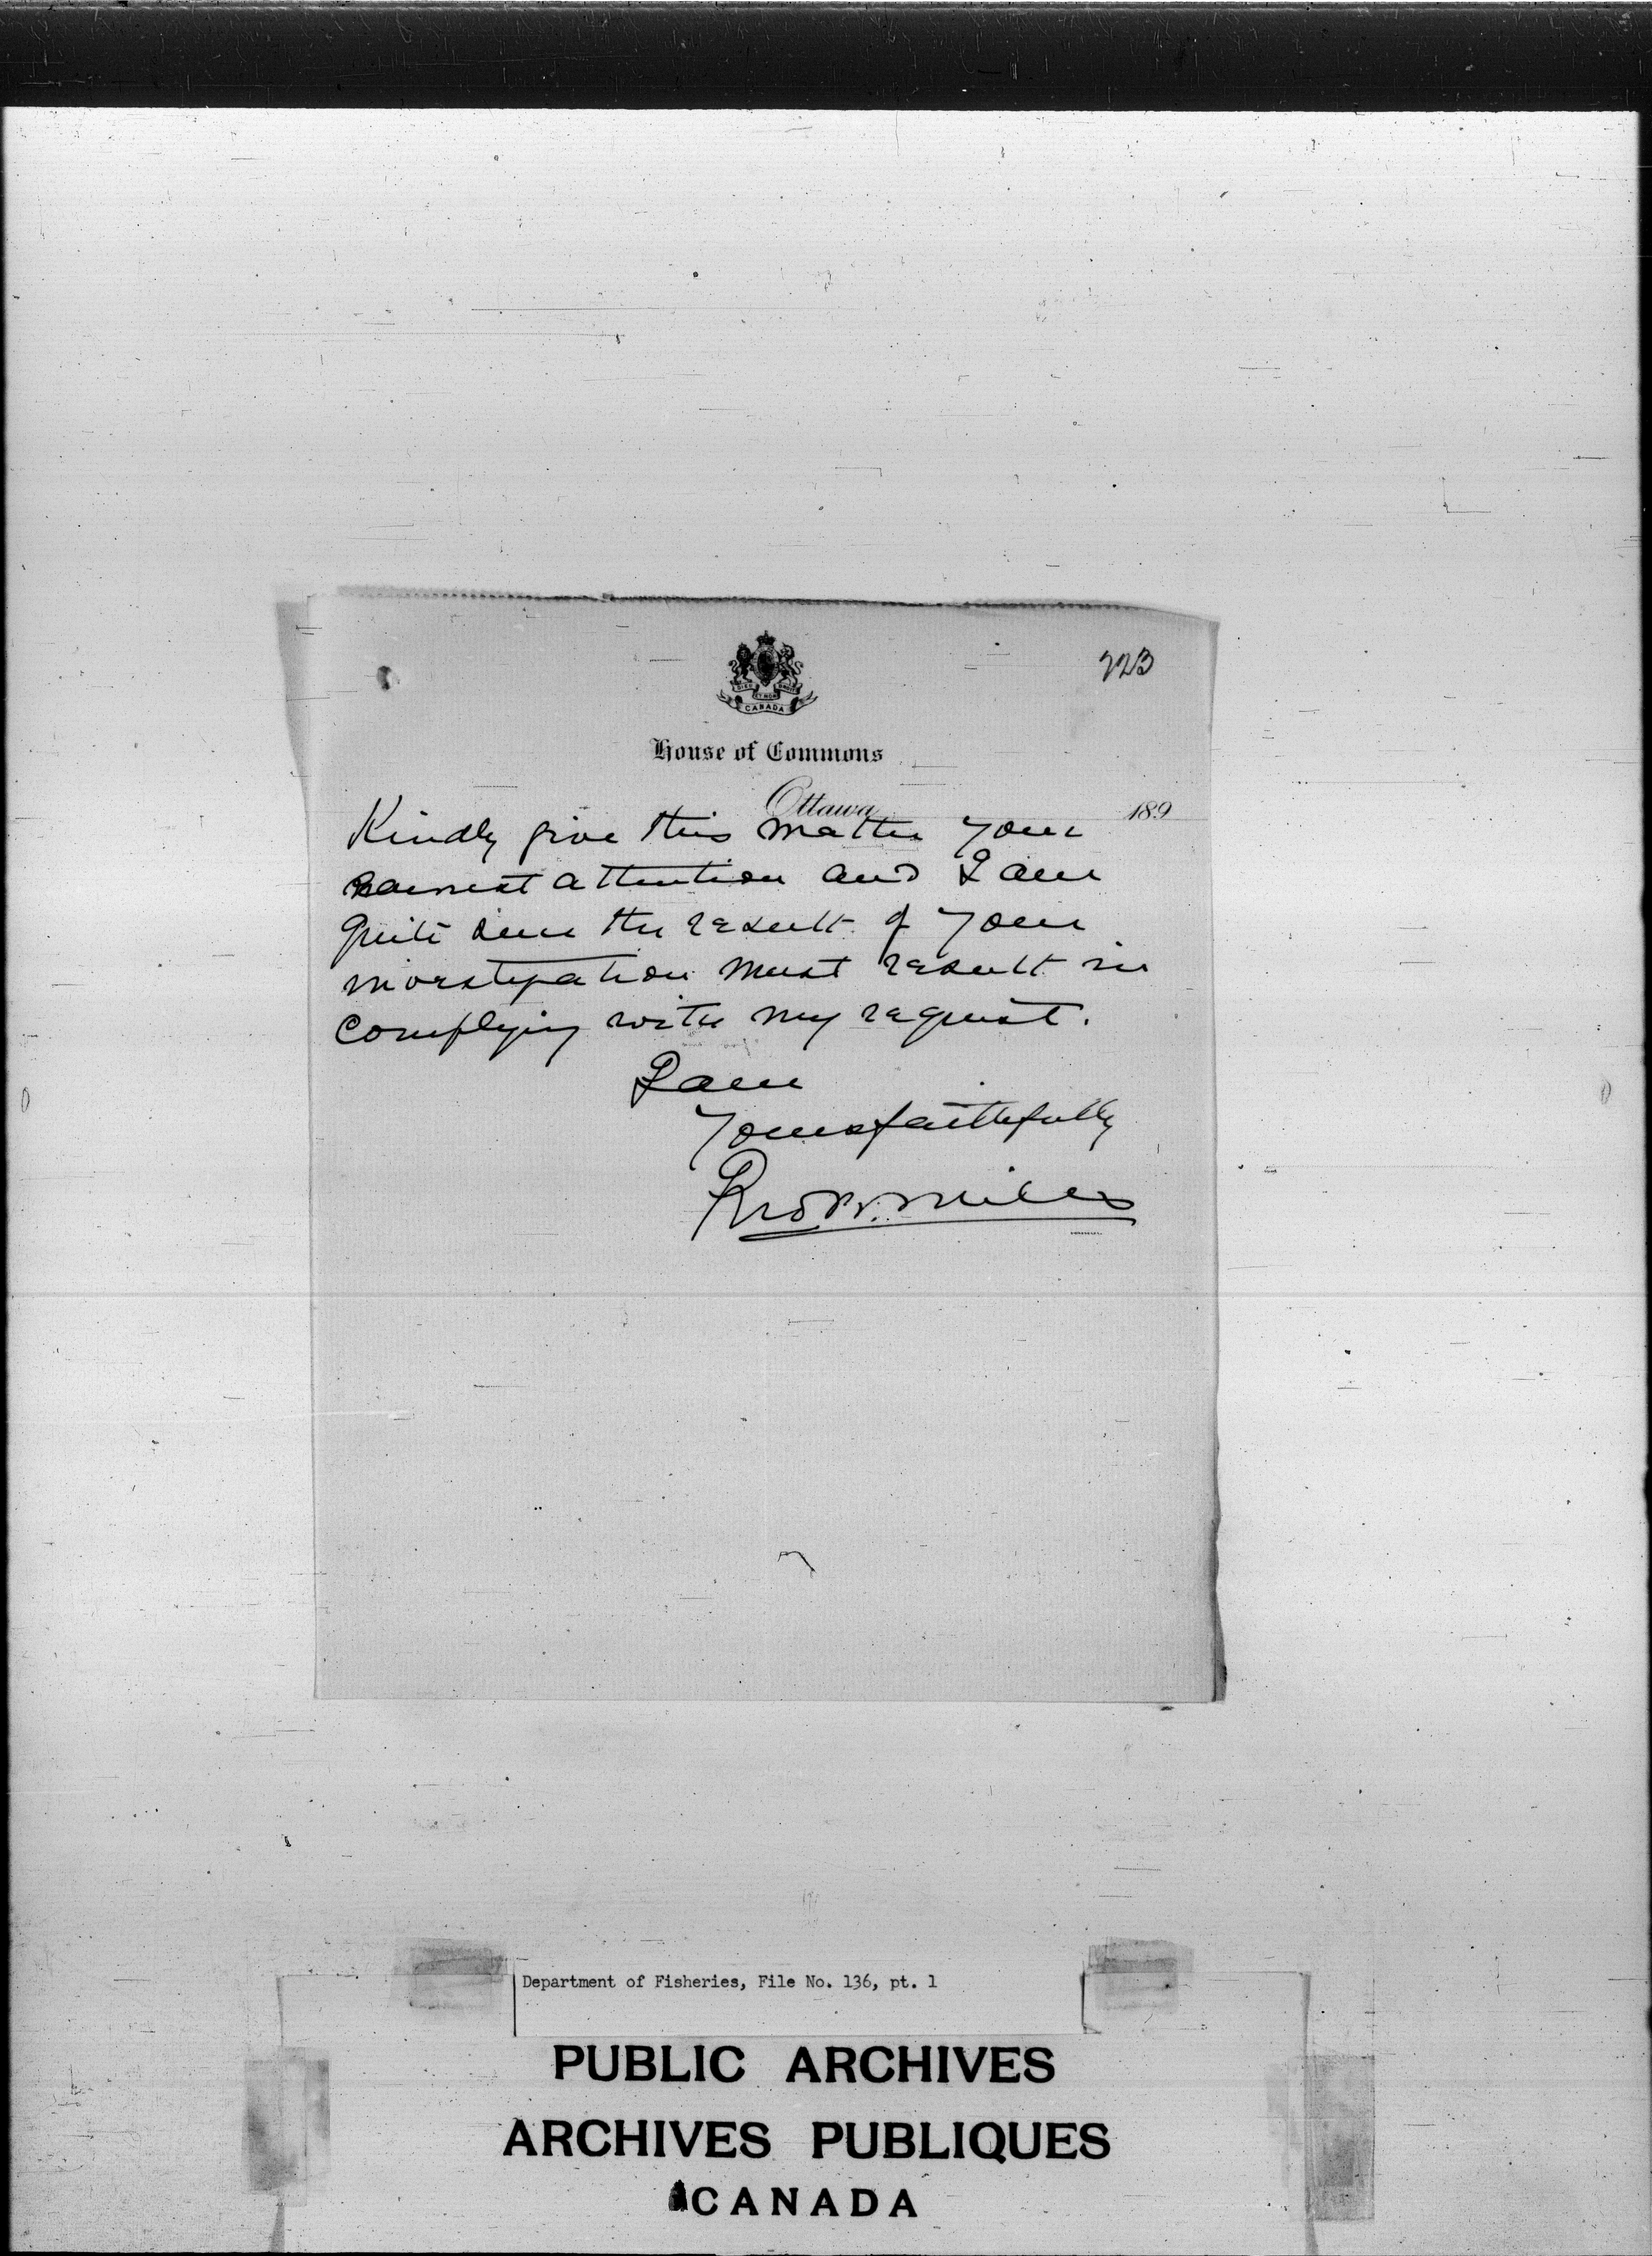 223
DIEU ET MON DROIT
CANADA
House of Commons
Ottawa 189
Kindly give this matter your
earnest attention and I am
quite sure the result of your
investigation must result in
complying with my request.
I am
Yours faithfully
Department of Fisheries, File No. 136, pt. 1
PUBLIC ARCHIVES
ARCHIVES PUBLIQUES
CANADA